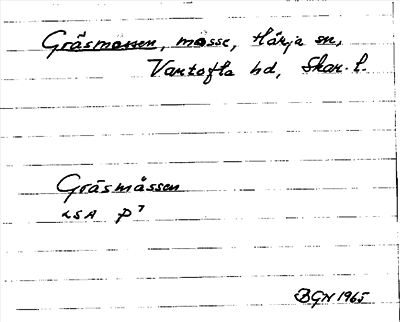 Gräsmossen, mosse, Härja sn,
Vartofta hd, Skar. l.
Gräsmåssen
LSA P7
BGN 1965